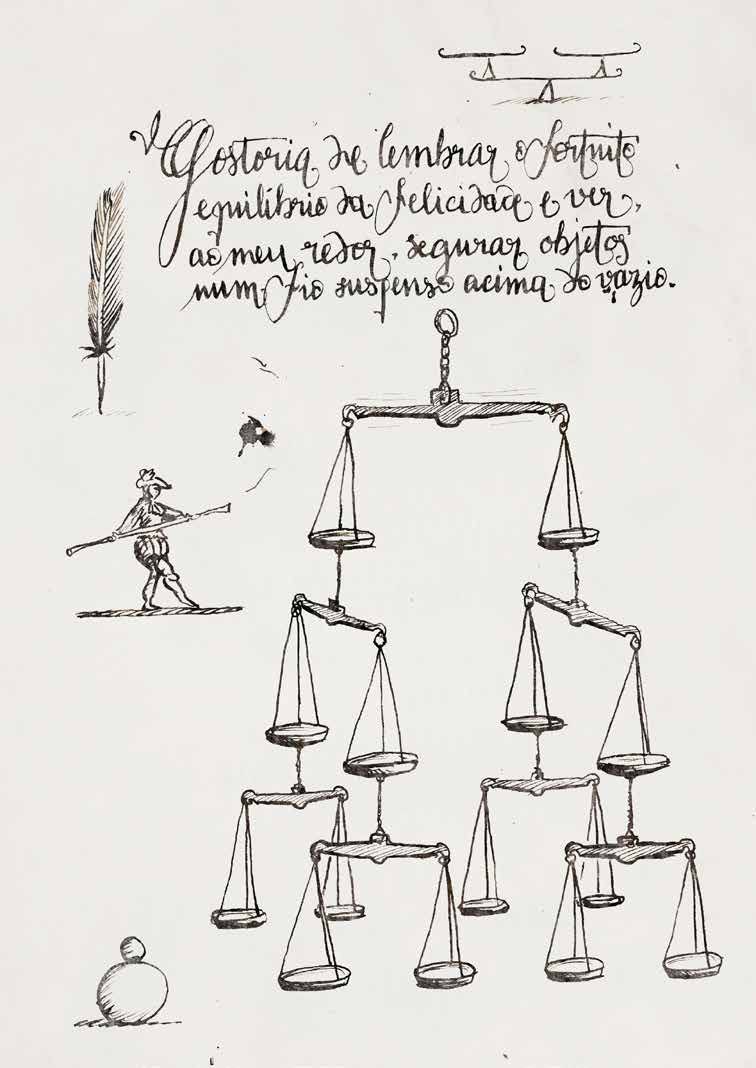 Gostaria de lembrar o fortuito
equilíbrio da felicidade e ver,
ao meu redor, segurar objetos
num fio suspenso acima do vazio.